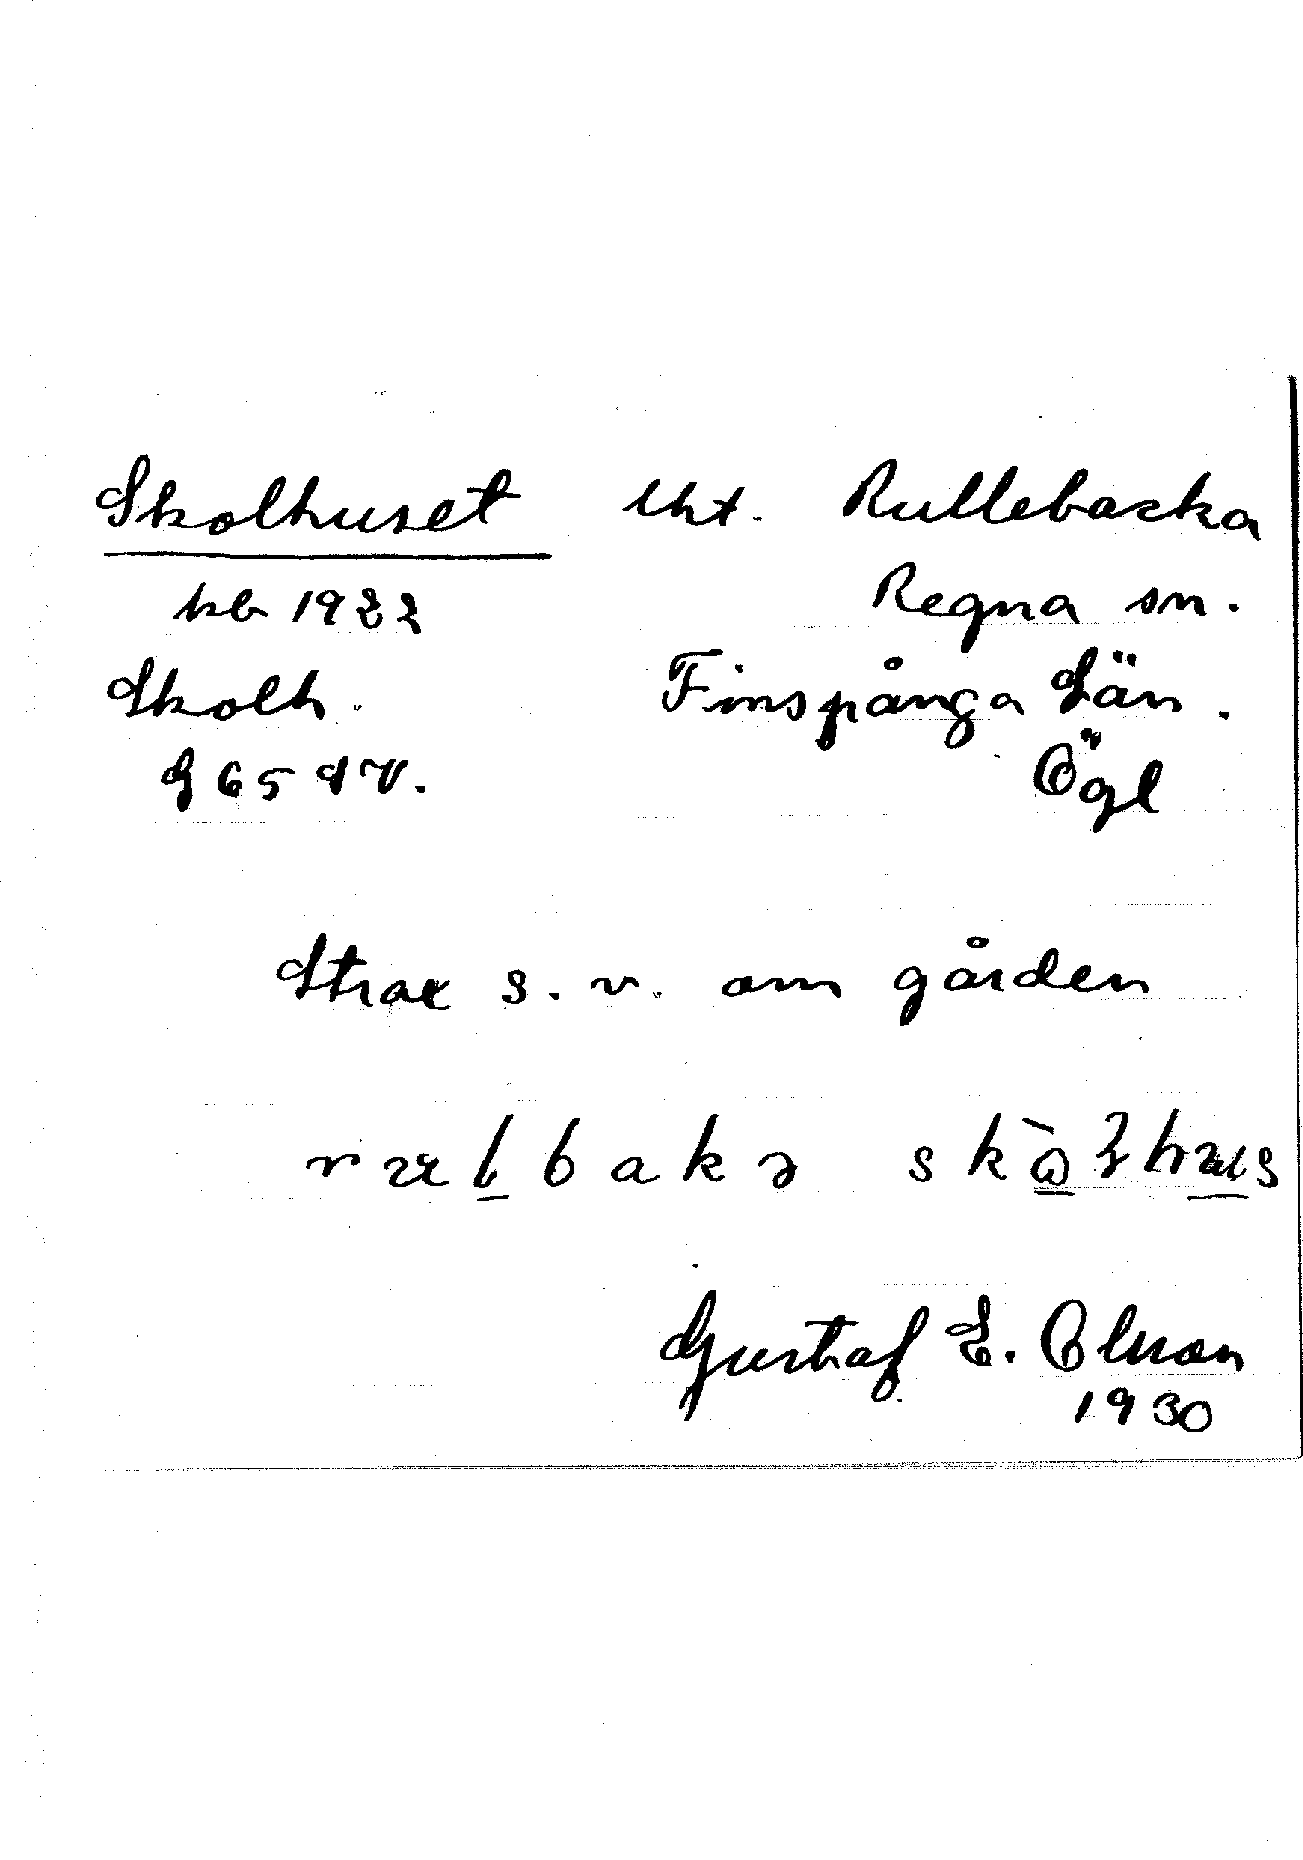 Skolhuset lht. Rullebacka
kb 1922 Regna sn.
Skolh. Finspånga Län.
G 65 SV. Ögl
Strax s.v. om gården
Gustaf E. Olsson
1930